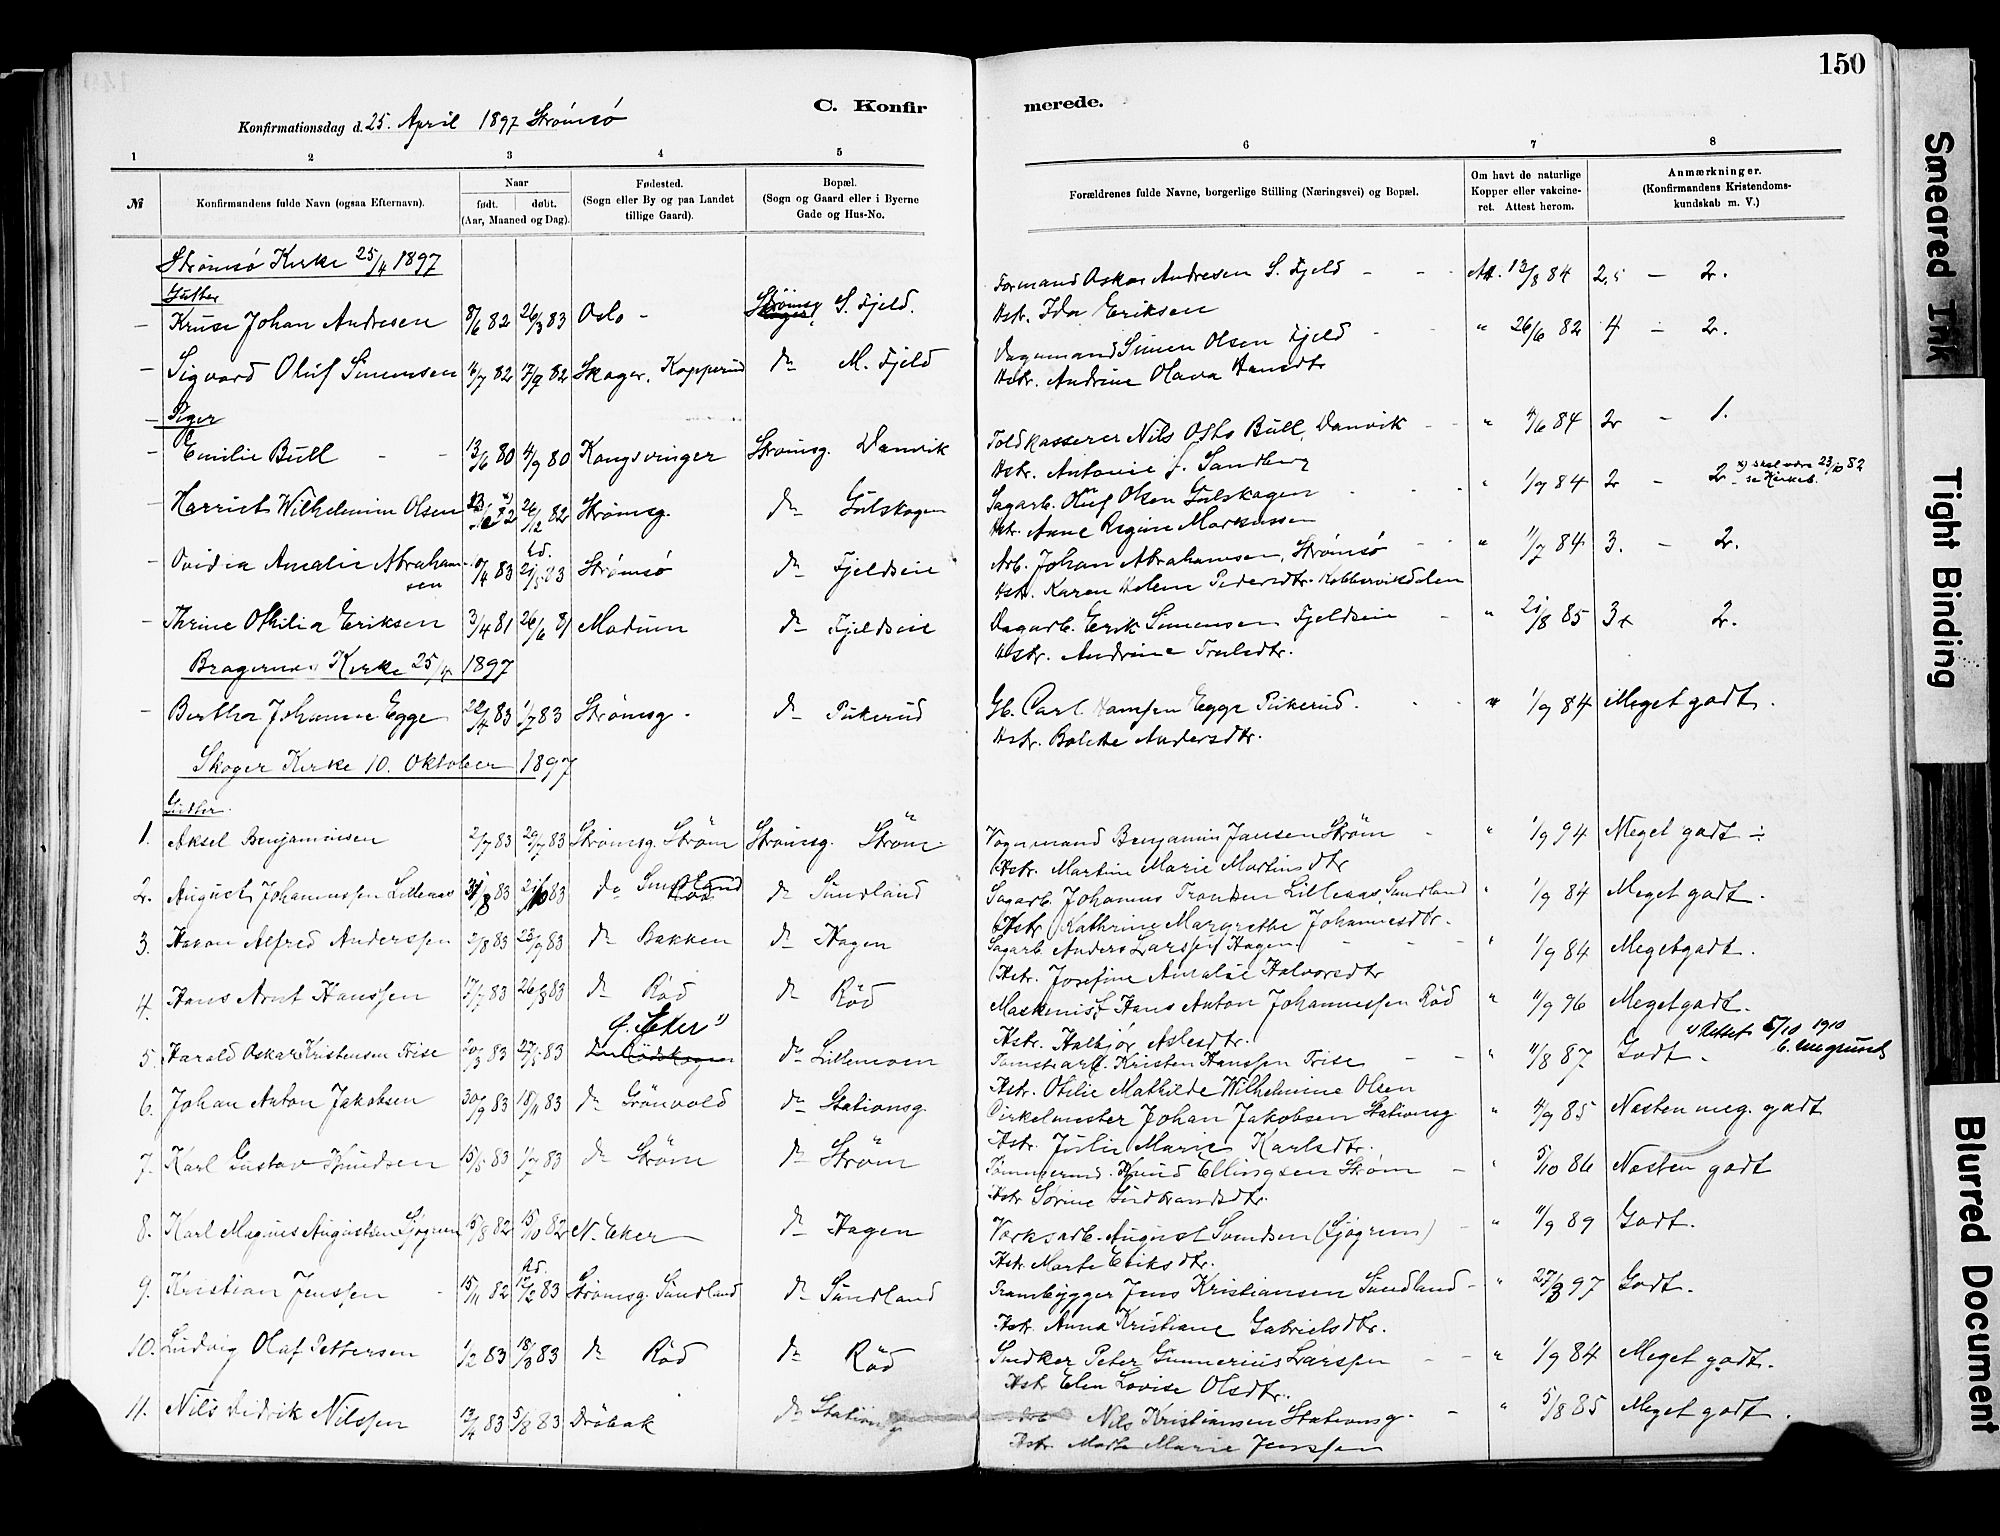 150
C. Konfir merede.
Konfirmationsdag d. 25. April 1897 Strömsö
1 2 3 4 5 6 7 8
№ Konfirmandens fulde Navn (ogsaa Efternavn). Naar født. døbt. (Aar, Maaned og Dag). Fødested. (Sogn eller By og paa Landet tillige Gaard). Bopæl. (Sogn og Gaard eller i Byerne Gade og Hus-No. Forældrenes fulde Navne, borgerlige Stilling (Næringsvei) og Bopæl. Om havt de naturlige Kopper eller vakcineret. Attest herom. Anmærkninger. (Konfirmandens Kristendomskundskab m. V.)
Strömsö Kirke 25/4 1897
Gutter
– Kruse Johan Andresen 8/6 82 26/3 83 Oslo – Strömsg. S. Fjeld. Formand Oskar Andresen S. Fjeld – – Att. 12/8 84 2,5 – 2.
Hstr. Ida Eriksen
– Sigvard Oluf Simensen 16/7 82 17/9 82 Skoger, Kopperud do M. Fjeld Dagmand Simen Olsen Fjeld – " 26/6 82 4 – 2.
Hstr. Andrine Olava Hansdtr
– Piger
– Emilie Bull – – 13/6 80 4/9 80 Kongsvinger Strömsg. Danvik Toldkasserer Nils Otto Bull, Danvik – – " 4/6 84 2 – 1.
Hstr. Antonie J. Sandberg
– Harriet Wilhelmine Olsen 26/12 82 Strömsg. do Gulskogen Sagarb. Oluf Olsen Gulskogen " 1/9 84 2 – 2 x) skal være 23/10 82 se Kirkeb.
Hstr. Anne Regine Markussen
– Ovidia Amalie Abrahamsen 9/4 83 Strömsö do Fjeldseie Arb. Johan Abrahamsen, Strömsö – – " 1/7 84 3. – 2.
Hstr. Karen Helene Pedersdtr. Kobbervikdalen
– Thrine Othilia Eriksen 3/4 81 26/6 81 Modum do Fjeldseie Dagarb. Erik Simensen Fjeldseie – " 21/8 85 3+ 2.
Hstr. Andrine Trulsdtr.
Bragernes Kirke 25/4 1897
– Berthe Johanne Egge 22/4 83 1/7 83 Strömsg. do Pukerud Gb. Carl Hansen Egge Pukerud. " 1/9 84 Meget godt.
Hstr. Bolette Andersdtr.
Skoger Kirke 10. Oktober 1897
Gutter.
1. Aksel Benjaminsen 2/7 83 29/7 83 Strömsg. Ström Strömsg. Ström. Vognmand Benjamin Jansen Ström – " 1/9 94 Meget godt ÷
Hstr. Martine Marie Martinsdtr
2. August Johannessen Lilleaas 31/8 83 21/10 83 do Sundland do Sundland Sagarb. Johannes Trondsen Lilleaas, Sundland " 1/9 84 Meget godt.
Hstr. Kathrine Margrethe Johannesdtr.
3. Haron Alfred Anderssen 2/8 83 23/9 83 do Bakken do Hagen Sagarb. Anders Larssen Hagen. – – – " 1/9 84 Meget godt.
Hstr. Josefine Amalie Halvorsdtr
4. Hans Arnt Hanssen 17/7 83 26/8 83 do Röd do Röd Maskinist Hans Anton Johannessen Röd " 11/9 96 Meget godt.
Hstr. Halbjør Aslesdtr.
5. Harald Oskar Kristensen Frise 20/3 83 27/5 83 Ø. Eker 1) do Lillemoen Tomtearb. Kristen Hanssen Frise – – " 11/8 87 Godt. 1) Rettet 5/10 1910
Hstr. Otilie Mathilde Wilhelmine Olsen
6. Johan Anton Jakobsen 30/9 83 18/11 83 do Grönvold do Stationsg. Cirkelmester Johan Jakobsen Stationsg " 4/9 85 Næsten meg. godt
Hstr. Julie Marie Karlsdtr.
7. Karl Gustav Knudsen 15/5 83 1/7 83 do Ström do Ström Tömmermd. Knud Ellingsen Ström – " 5/10 86 Næsten godt
Hstr Sörine Gudbrandsdtr.
8. Karl Magnus Augustsen Sjøgren 15/8 82 15/10 82 N. Eker do Hagen Værksarb. August Svendsen (Sjøgren) – " 11/9 89 Godt.
Hstr. Marte Eriksdtr.
9. Kristian Jenssen – 15/11 82 hd. 18/2 83 Strömsg. Sundland do Sundland Prambygger Jens Kristiansen Sundland – " 27/3 97 Godt.
Hstr. Anna Kristiane Gabrielsdtr.
10. Ludvig Oluf Pettersen 1/2 83 18/3 83 do Röd do Röd Snedker Peter Gunnerius Larssen – – " 1/9 84 Meget godt.
Hstr Elen Lovise Olsdtr.
11. Nils Didrik Nilssen 13/4 83 5/8 83 Dröbak do Stationsg Arb Nils Kristiansen Stationsg. – " 5/8 85 Meget godt.
Hstr. Marthe Marie Jenssen
Smeared Ink
Tight Binding
Blurred Document